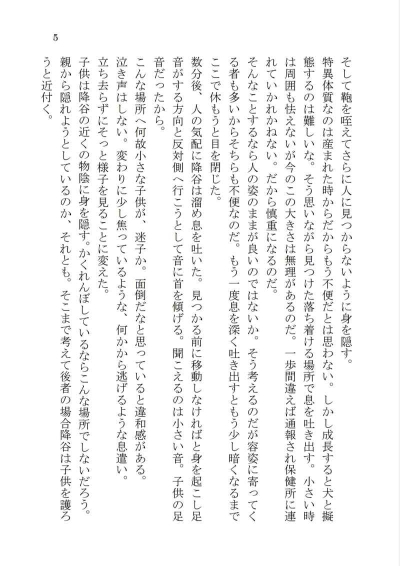 5
そして鞄を咥えてさらに人に見つからないように身を隠す。
特異体質なのは産まれた時からだからもう不便だとは思わない。しかし成長すると犬と擬
態するのは難しいな。そう思いながら見つけた落ち着ける場所で息を吐き出す。小さい時
は周囲も怯えないが今のこの大きさは無理があるのだ。一歩間違えば通報され保健所に連
れていかれかねない。だから慎重になるのだ。
そんなことするなら人の姿のままが良いのではないか。そう考えるのだが容姿に寄ってく
る者も多いからそちらも不便なのだ。もう一度息を深く吐き出すともう少し暗くなるまで
ここで休もうと目を閉じた。
数分後、人の気配に降谷は溜め息を吐いた。見つかる前に移動しなければと身を起こし足
音がする方向と反対側へ行こうとして音に首を傾げる。聞こえるのは小さい音。子供の足
音だったから。
こんな場所へ何故小さな子供が、迷子か。面倒だなと思っていると違和感がある。
泣き声はしない。変わりに少し焦っているような、何かから逃げるような息遣い。
立ち去らずにそっと様子を見ることに変えた。
子供は降谷の近くの物陰に身を隠す。かくれんぼしているならこんな場所でしないだろう。
親から隠れようとしているのか、それとも。そこまで考えて後者の場合降谷は子供を護ろ
うと近付く。